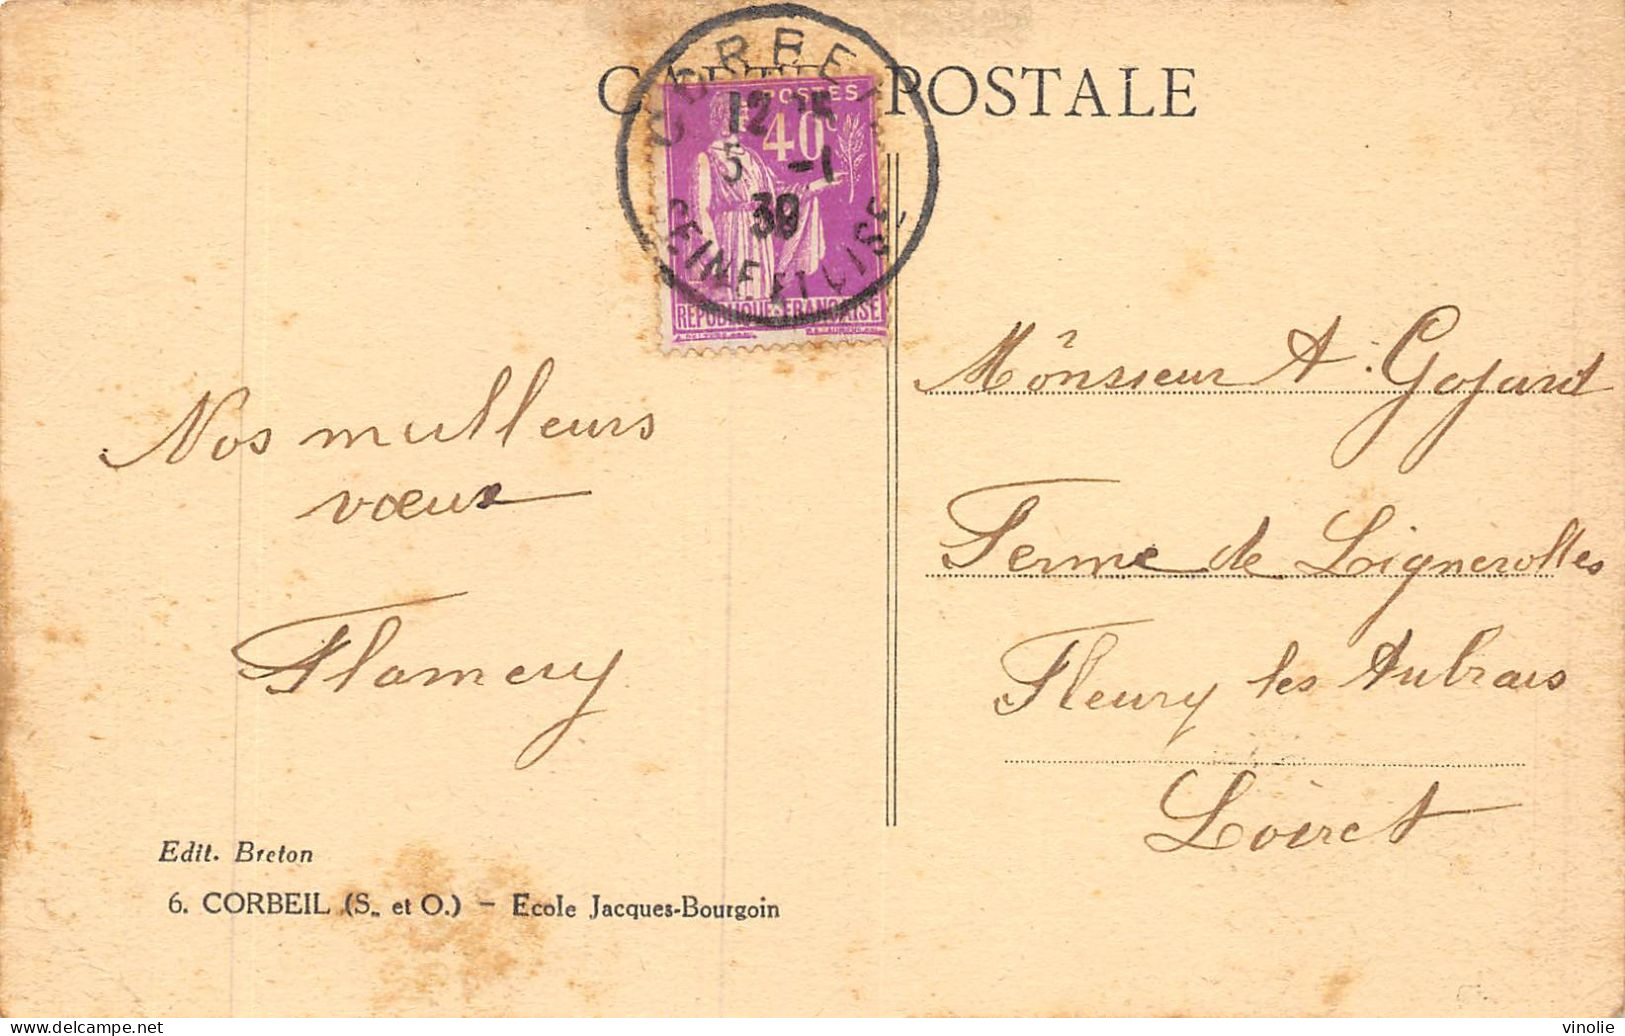 CARTE POSTALE
CORBEIL
12
5 -1
38
SEINE ET OISE
POSTES
40c
REPUBLIQUE-FRANCAISE
Nos meilleurs
vœux
Flamery
Monsieur A. Gojard
Ferme de Lignerolles
Fleury les Aubrais
Loiret
Edit. Breton
6. CORBEIL (S. et O.) – Ecole Jacques-Bourgoin
delcampe.net
vinolie